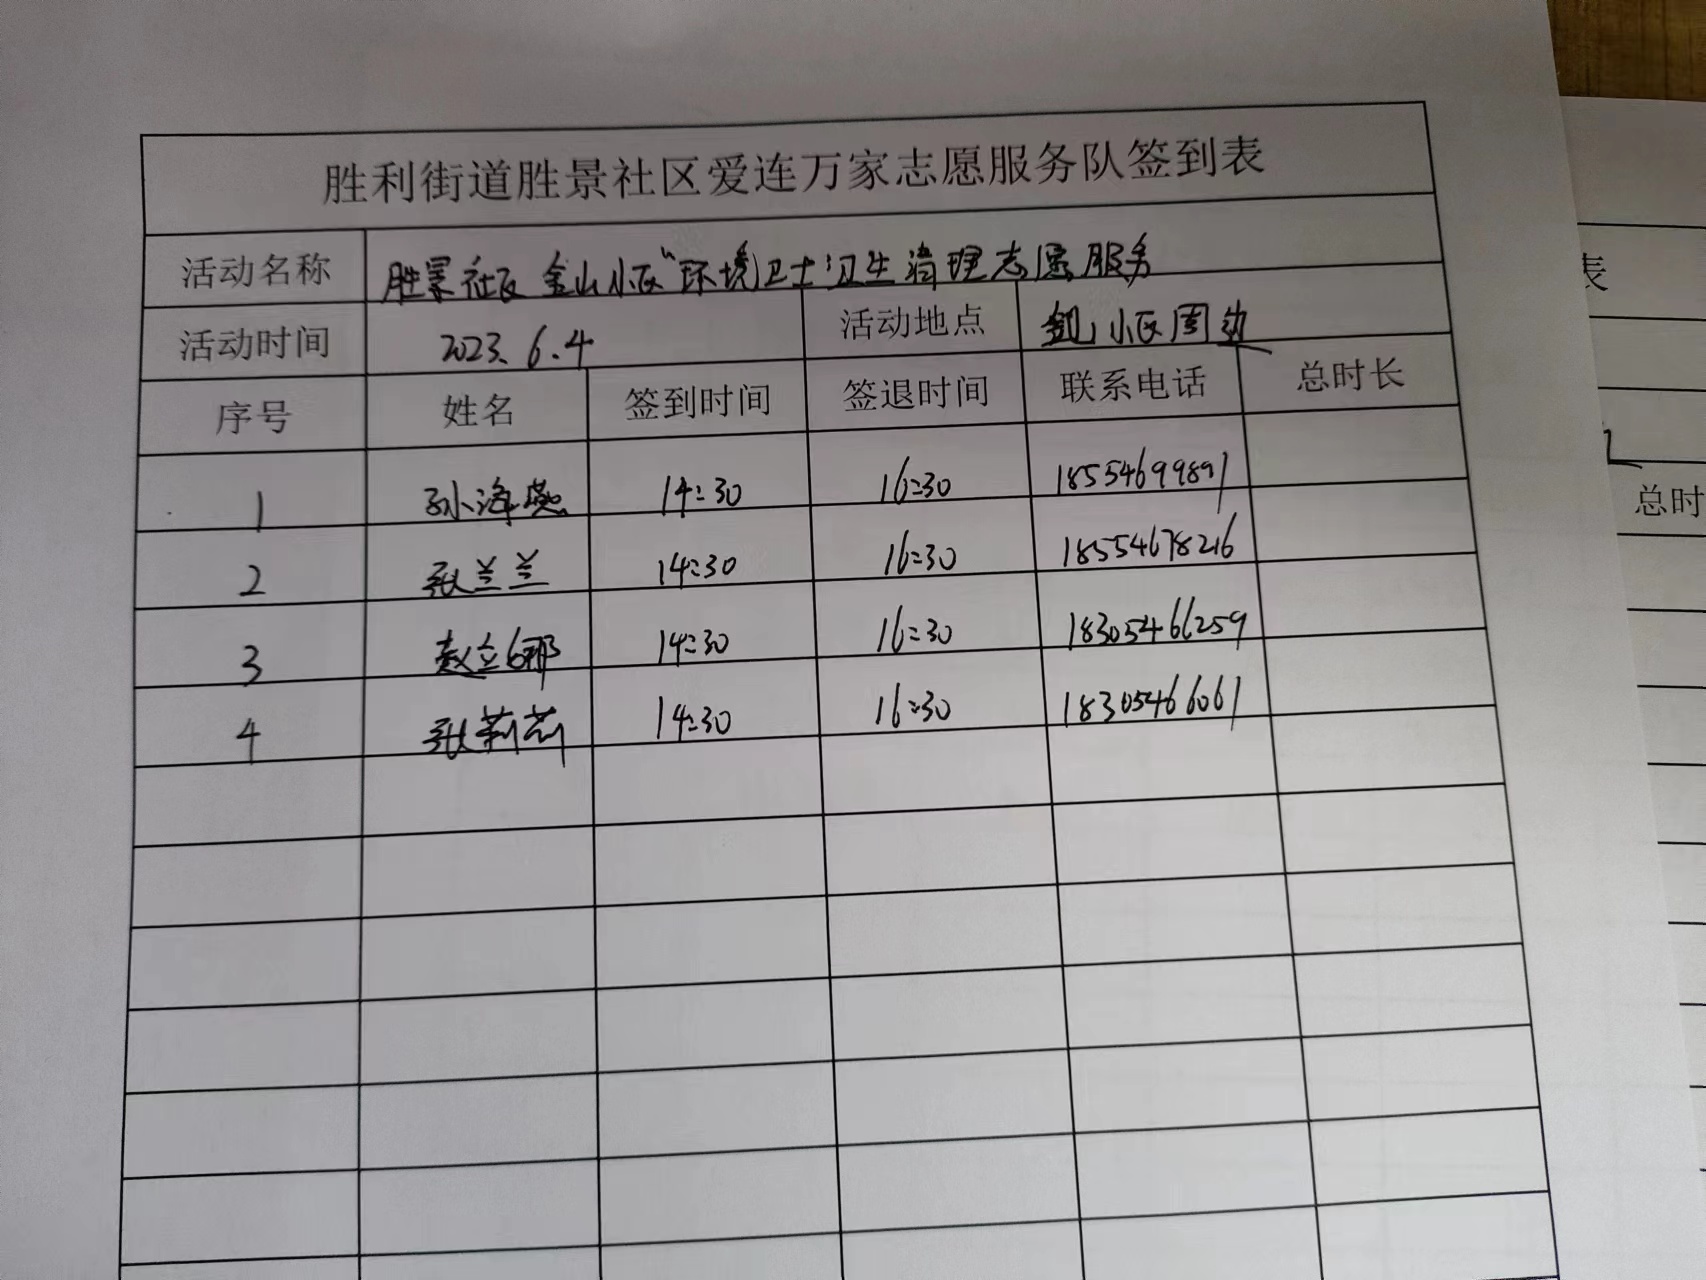 胜利街道胜景社区爱连万家志愿服务队签到表
活动名称 胜景社区金山小区“环境卫士卫生清理志愿服务
活动时间 2023.6.4 活动地点 金山小区周边
序号 姓名 签到时间 签退时间 联系电话 总时长
1 孙海燕 14:30 16:30 18554699891
2 张兰兰 14:30 16:30 18554678216
3 赵立娜 14:30 16:30 18305466259
4 张莉莉 14:30 16:30 18305466061
表
总时